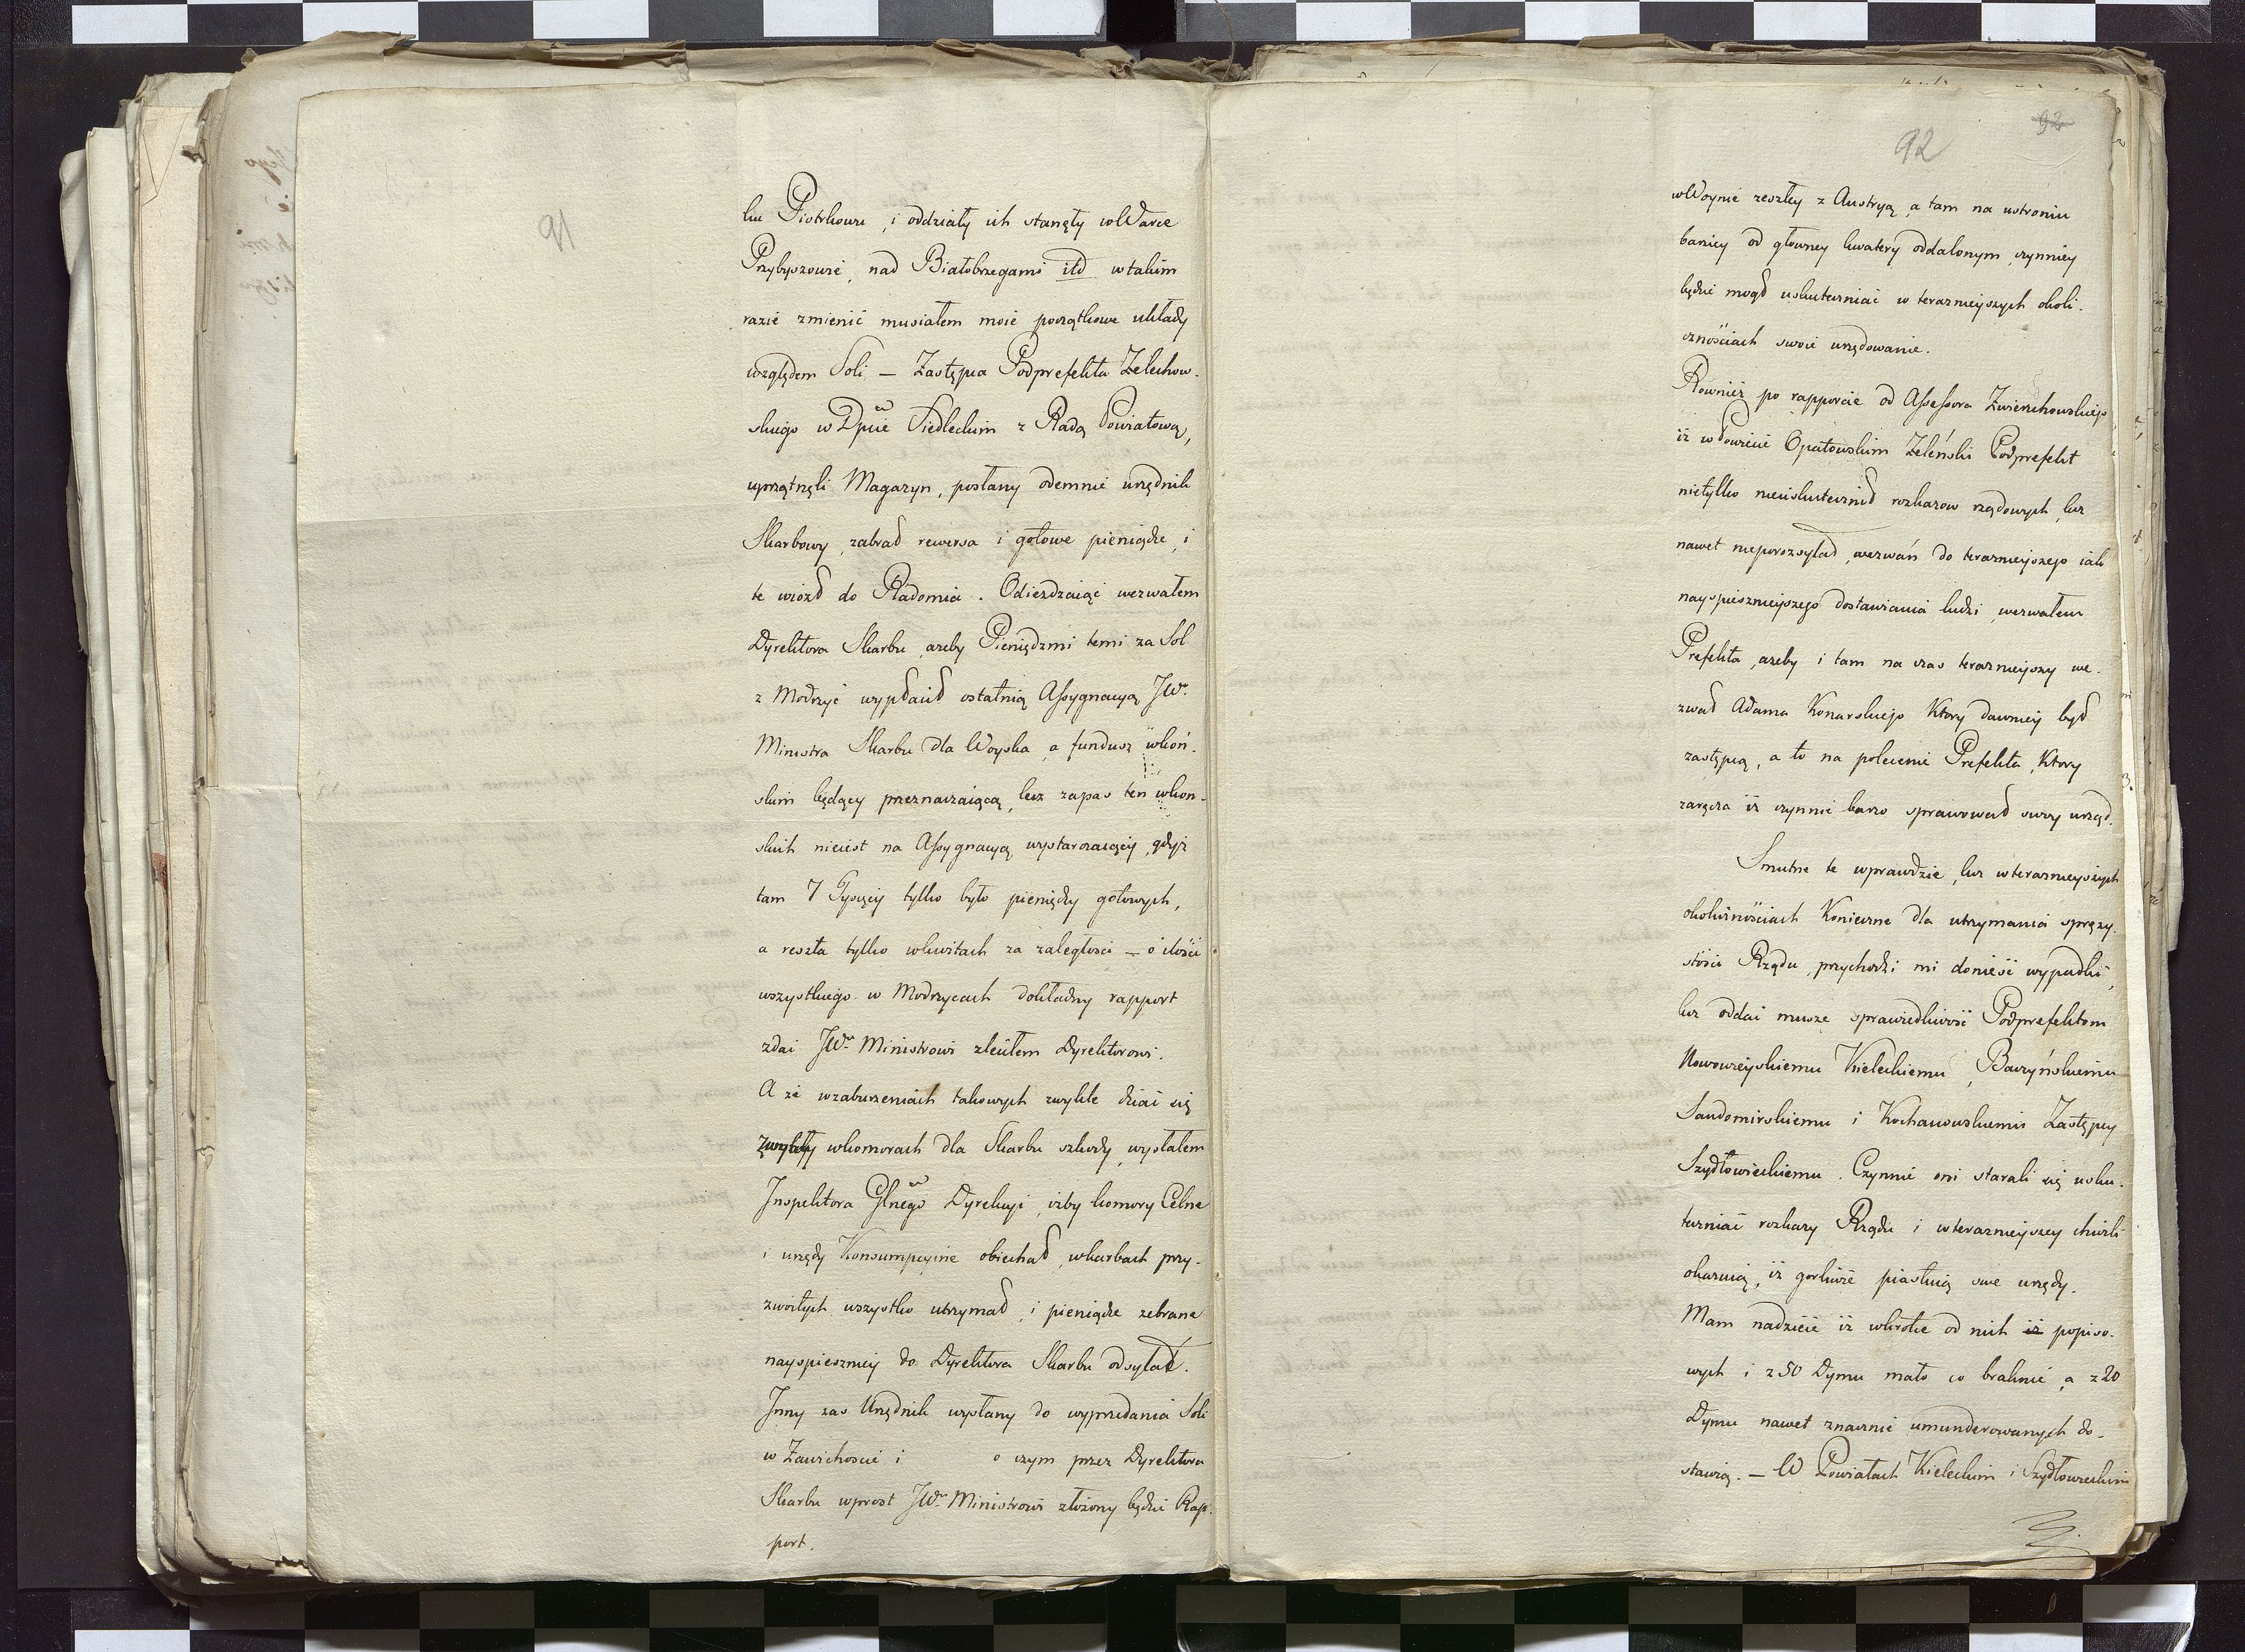 91
ku Piotrkowu, i oddziały ich stanęły w Warce
Przybyszowie, nad Białobrzegami itd w takim
razie zmienić musiałem moie początkowe układy
względem Soli – Zastępca Podprefekta Zelechow-
skiego w Dpcie Siedleckim z Radą Powiatową,
uprzątnęli Magazyn, posłany odemnie urzędnik
Skarbowy, zabrał rewersa i gotowe pieniądze, i
te wiozł do Radomia. Odieżdzaiąc wezwałem
Dyrektora Skarbu, ażeby Pieniędzmi temi za Sol
z Modrzyc wypłacił ostatnią Assygnacyą JW.
Ministra Skarbu dla Woyska, a fundusz w koń-
skim będący przeznaczaiącą, lecz zapas ten w koń-
skich nieiest na Assygnacyą wystarczaiący, gdyż
tam 7 Tysięcy tylko było pieniędzy gotowych,
a reszta tylko w kwitach za zaległosci – o ilości
wszystkiego w Modrzycach dokładny rapport
zdać JW. Ministrowi zleciłem Dyrektorowi.
A że w zaburzeniach takowych zwykle dziać się
w komorach dla Skarbu szkody, wysłałem
Inspektora Glnego Dyrekcyi, izby komory Celne
i urzędy Konsumpcyine obiechał, w karbach przy-
zwoitych wszystko utrzymał, i pieniądze zebrane
nayspieszniey do Dyrektora Skarbu odsyłał.
Inny zas Urzędnik wysłany do wyprzedania Soli
w Zawichoscie i o czym przez Dyrektora
Skarbu wprost JW. Ministrowi złożony będzie Rap-
port.
92
92
w Woynie zeszłey z Austryą, a tam na ustroniu
barziey od głowney kwatery oddalonym, czynniey
będzie mogł uskuteczniać w terazniejszych okoli-
cznościach swoie urzędowanie.
Rownież po rapporcie od Assessora Zwierzchowskiego
iż w Powiecie Opatowskim Zeleński Podprefekt
nietylko nieuskutecznił rozkazow rządowych, lecz
nawet nieporozsyłał, wezwań do terazniejszego iak
nayspieszniejszego dostawiania ludzi, wezwałem
Prefekta, ażeby i tam na czas terazniejszy we-
zwał Adama Konarskiego Ktory dawniey był
zastępcą, a to na polecenie Prefekta, Ktory
zaręcza iż czynnie barzo sprawował swoy urząd.
Smutne te wprawdzie, lecz w terazniejszych
okolicznościach Konieczne dla utrzymania spręży-
stości Rządu, przychodzi mi donieść wypadki,
lecz oddać musze sprawiedliwość Podprefektom
Nowowieyskiemu Kieleckiemu, Baczyńskiemu
Sandomirskiemu i Kochanowskiemu Zastępcy
Szydłowieckiemu. Czynnie oni starali się usku-
teczniać rozkazy Rządu i w terazniejszey chwili
okazuią, iż gorliwie piastuią swe urzędy.
Mam nadzieię iż wkrotce od nich iż popiso-
wych i z 50 Dymu mało co braknie, a z 20
Dymu nawet znacznie umunderowanych do-
stawią. – W Powiatach Kieleckim i Szydłowieckim